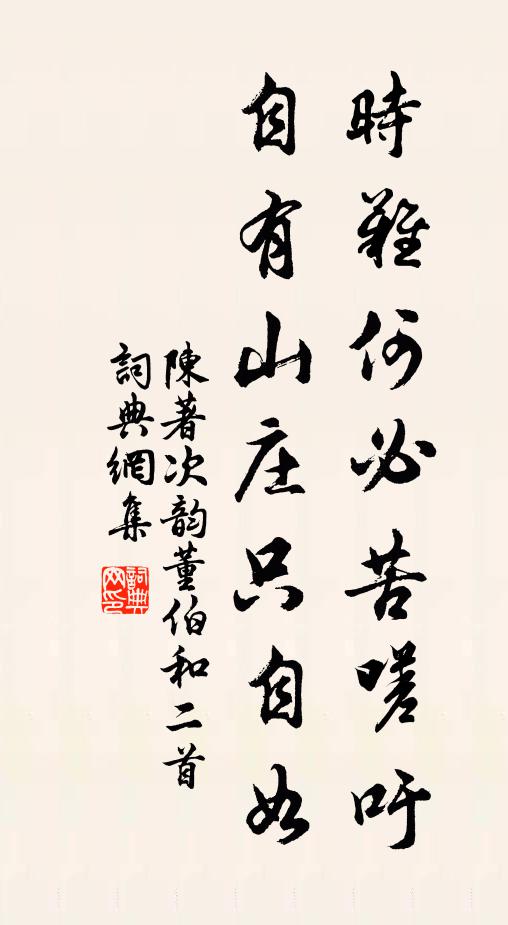 時難何必苦嗟吁
自有山庄只自如
陳著次韵董伯和二首
詞典網集
詞典
网印